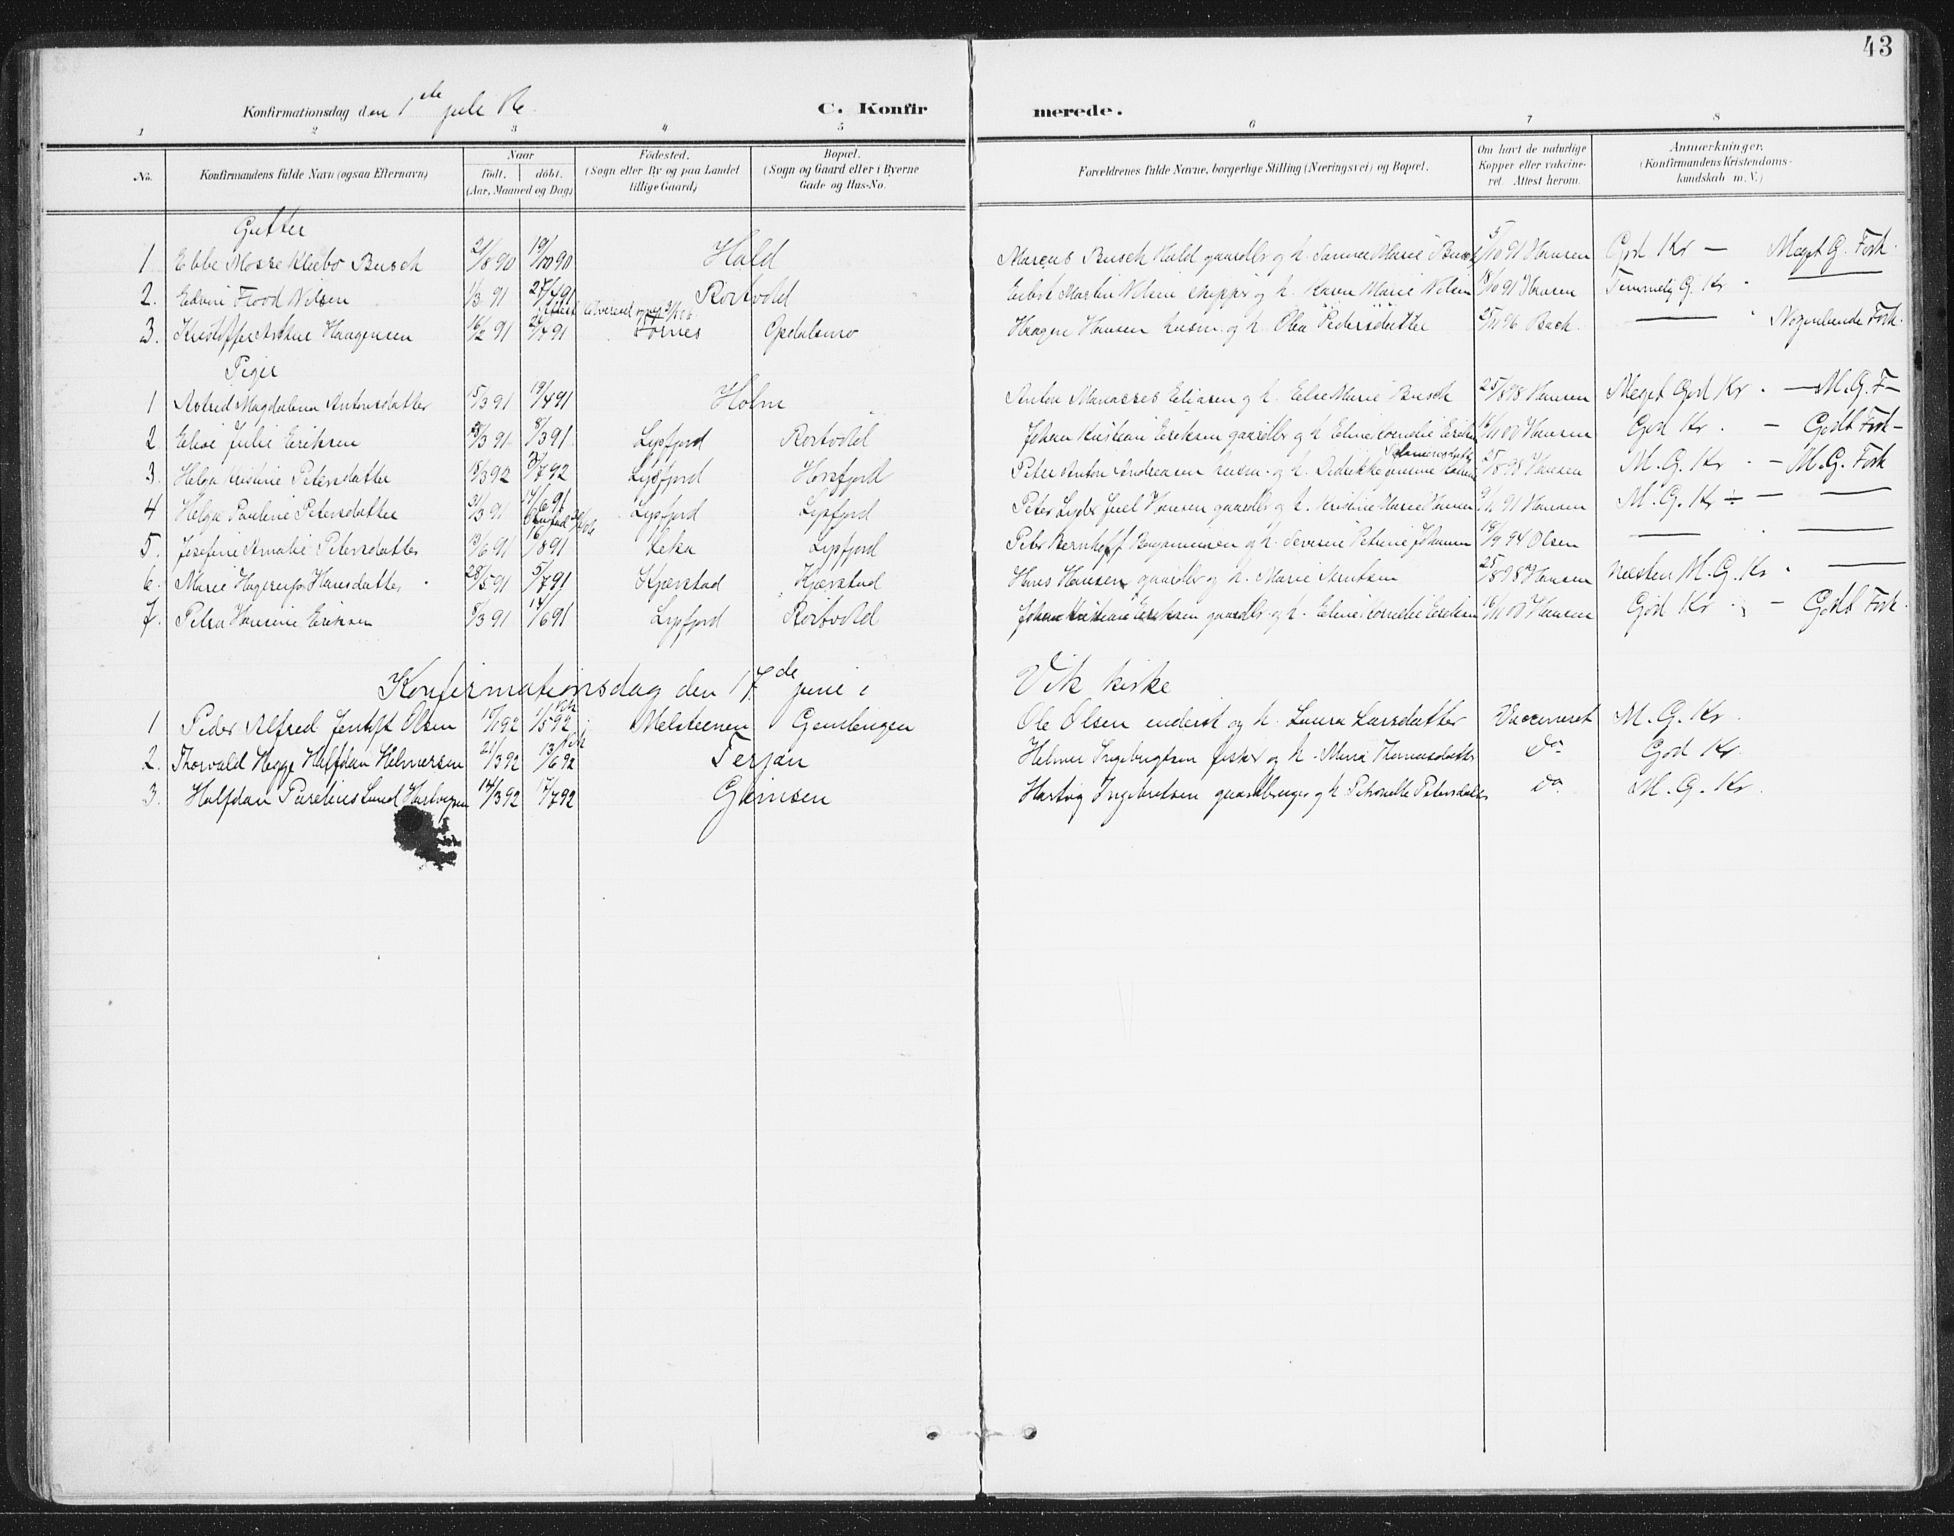 43
Konfirmationsdag den 1de juli 06
C. Konfirmerede.
1 2 3 4 5 6 7 8
No.
Konfirmandens fulde Navn (ogsaa Efternavn)
Naar
födt. döbt.
(Aar, Maaned og Dag)
Födested.
(Sogn eller By og paa Landet
tillige Gaard)
Bopæl.
(Sogn og Gaard eller i Byerne
Gade og Hus-No.
Forældrenes fulde Navne, borgerlige Stilling (Næringsvei) og Bopæl.
Om havt de naturlige
Kopper eller vakcine-
ret. Attest herom.
Anmærkninger.
(Konfirmandens Kristendoms-
kundskab m. V.)
Gutter
1 Ebbe Klæbo Busch 21/8 90 19/10 90 Hald Marcus Busch Hald gaardbr og h. Marie Busch 5/10 91 Hansen God Kr — Meget G. Forh.
2. Edvin Flood Nilsen 1/3 91 27/4 91 Rortvold Martin Nilsen skipper og h. Karen Marie Nilsen 18/10 91 Hansen Temmelig G. Kr. —
3. Haagensen 16/2 91 Tornes Haagen Hansen husm. og h. Olea Pedersdatter 96 Bach. — Nogenlunde Forh.
Piger
1 Astrid Magdalena Antonsdatter 15/3 91 19/4 91 Holm Anton Manasses Eliasen og h. Else Marie Busch 25/8 98 Hansen Meget God Kr. — M. G. F—
2 Julie Eriksen 91 8/3 91 Lysfjord Rortvold Johan Kristian Eriksen gaardbr og h. 16/11 00 Hansen God Kr. — Godt Forh—
3. Helga Kristine Petersdatter 18/3 92 3/7 92 Lysfjord Horsfjord Peter Anton Andreasen husm. og h. 25/8 98 Hansen M. G. Kr. — M. G. Forh
4 Helga Pauline Petersdatter 31/3 91 14/6 91 Lysfjord Lysfjord Peter Lyder Juel Hansen gaardbr og h. Kristine Marie Hansen 91 Hansen M. G. Kr ÷ — —
5. Josefine Amalie Petersdatter 91 16/8 91 Leka Lysfjord Peter Bernhoff Benjaminsen og h. Severine Petrine Johansen 94 Olsen — —
6. Marie Hansdatter 28/5 91 5/7 91 Kjærstad Kjærstad Hans Hansen gaardbr og h. Marie Arntsen 25/8 98 Hansen Næsten M. G. Kr. —
7. Petra Hansine Eriksen 8/3 91 14/6 91 Lysfjord Rortvold Johan Kristian Eriksen gaardbr. og h. 16/11 00 Hansen God Kr. — Godt Forh.
Konfirmationsdag den 17de juni i Vik kirke
1 Peder Alfred Olsen 92 1/5 92 Melsteenen Ole Olsen inderst og h. Laura Larsdatter Vaccineret M. G. Kr.
2. Thorvald Hegge Halfdan Helmersen 21/3 92 13/6 92 Terjan Helmer Ingebrigtsen fisker og h. Maria Thomasdatter do. God Kr.
3. Halfdan Lund Hartvigsen 14/3 92 17/7 92 Glemsen Hartvig Ingebretsen gaardbruger og h. Petersdatter do. M. G. Kr.